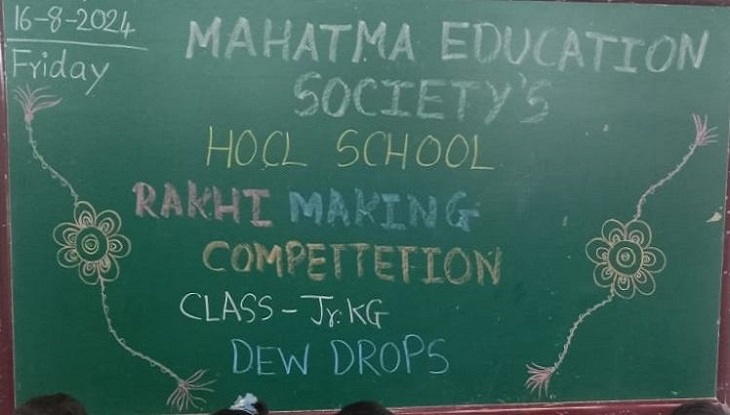 16-8-2024
Friday
MAHATMA EDUCATION
SOCIETY'S
HOCL SCHOOL
RAKHI MAKING
COMPETTETION
CLASS - Jr. KG
DEW DROPS